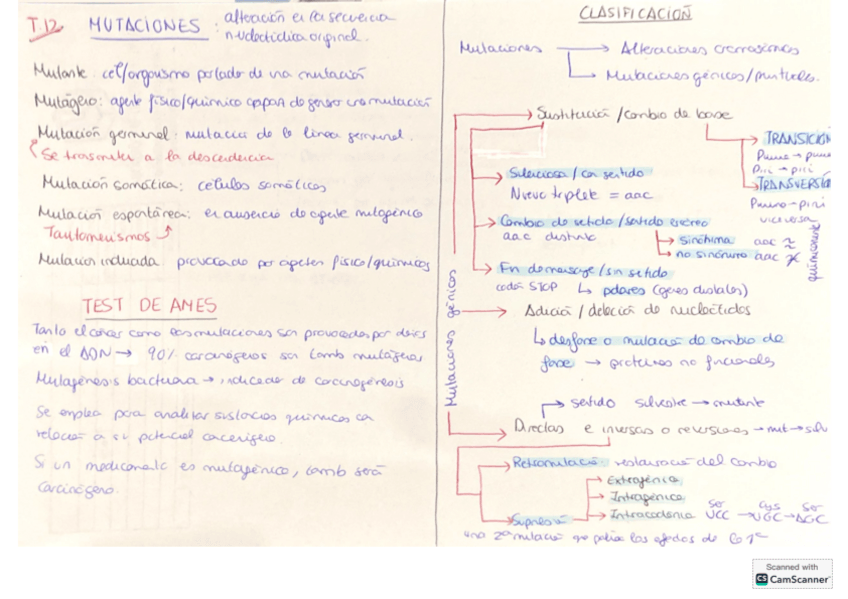 T.12 MUTACIONES : alteración en la secuencia
nucleotídica original.
Mutante: cel/organismo portador de una mutación
Mutágeno: agente físico/químico capaz de generar una mutación
Mutación germinal: mutación de la línea germinal.
Se transmiten a la descendencia
Mutación somática: células somáticas
Mutación espontánea: en ausencia de agente mutagénico
Tautomerismos
Mutación inducida: provocada por agentes físico/químicos
TEST DE AMES
Tanto el cáncer como las mutaciones son provocadas por daños
en el ADN → 90% carcinógenos son también mutágenos
Mutagénesis bacteriana → indicador de carcinogénesis
Se emplea para analizar sustancias químicas con
relación a su potencial cancerígeno.
Si un medicamento es mutagénico, también será
carcinógeno.
CLASIFICACIÓN
Mutaciones → Alteraciones cromosómicas
→ Mutaciones génicas/puntuales.
Mutaciones génicas
Sustitución/cambio de base
TRANSICIÓN
Puri → piri
TRANSVERSIÓN
Purina → piri
viceversa
Silenciosa/con sentido
Nuevo triplete = aac
Cambio de sentido/sentido erróneo
aac distinto
sinónima aac ≈
no sinónima aac
químicamente
Fin de mensaje/sin sentido
codón STOP ↳ polares (genes distales)
Adición/deleción de nucleótidos
↳ desfase o mutación de cambio de
fase → proteínas no funcionales
sentido silvestre → mutante
Directas e inversas o reversiones → mut → silv
Retromutación: restauración del cambio
Supresión
Extragénica
Intragénica
Intracodónica
Ser Cys Ser
UCC → UGC → AGC
una 2ª mutación que palia los efectos de la 1ª
Scanned with
CS CamScanner